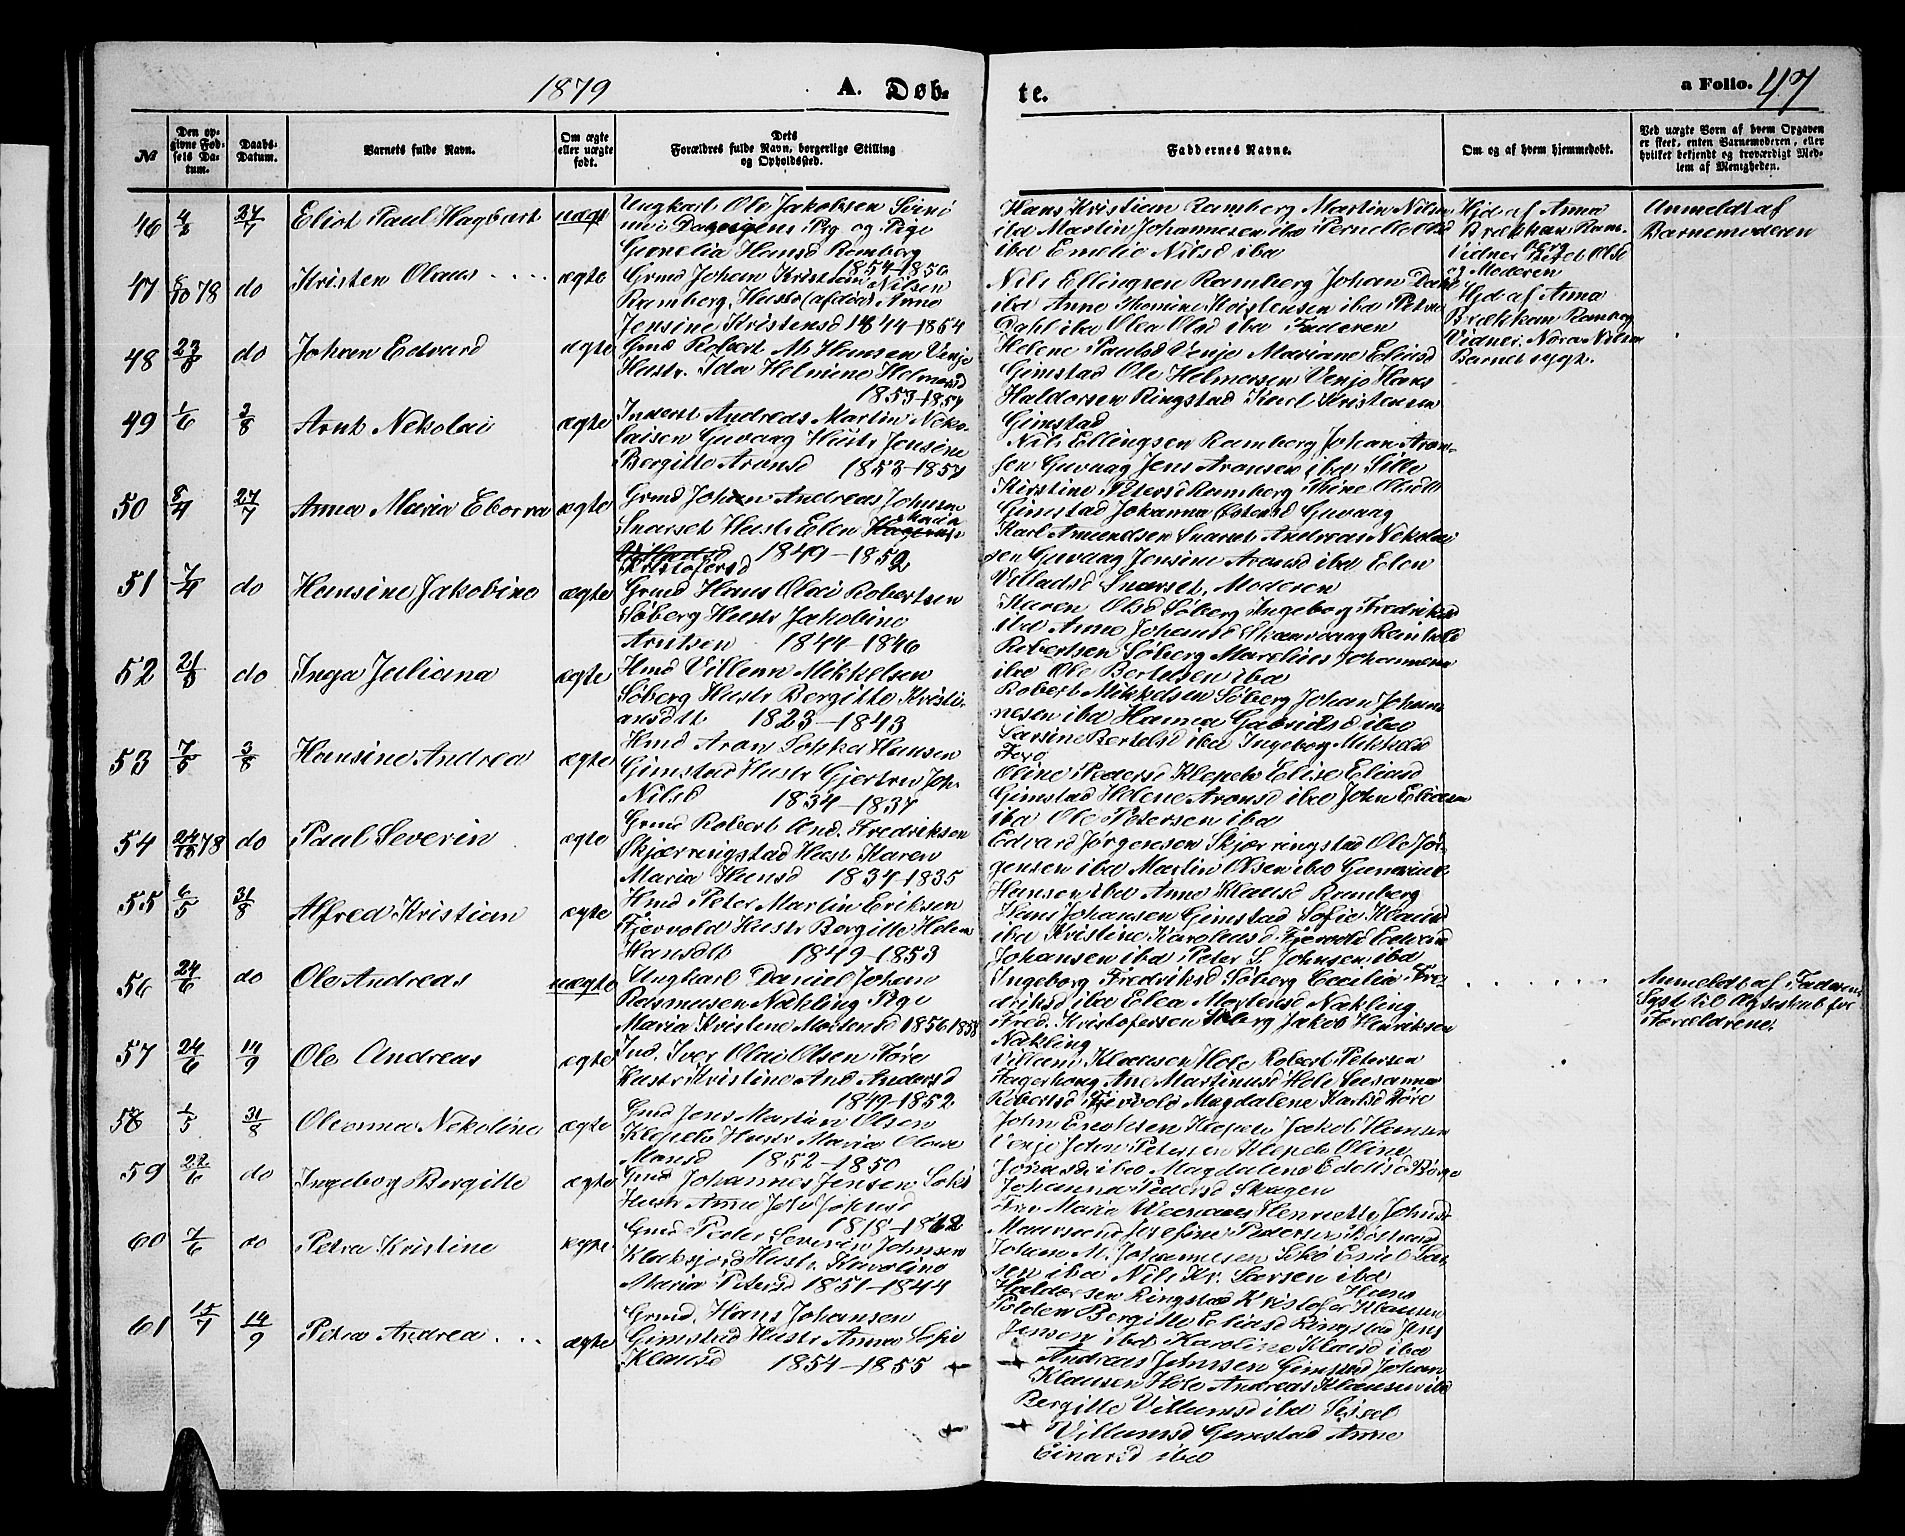 1879 A. Døb-
te. a Folio. 47
№
Den op-
givne Fød-
sels Da-
tum.
Daabs-
Datum.
Barnets fulde Navn.
Om ægte
eller uægte
født.
Dets
Forældres fulde Navn, borgerlige Stilling
og Opholdssted.
Faddernes Navne.
Om og af hvem hjemmedøbt.
Ved uægte Børn af hvem Opgaven
er skeet, enten Barnemoderen, eller
hvilket bekjendt og troværdigt Med-
lem af Menigheden.
46 27/7 Eliot Paul Hagbart uægt
Ungkarl Ole Jakobsen
og Pige
Hansd Ramberg
1854-1850
Hans Kristian Ramberg Martin Nilsen
iba Martin Johannesen iba Pernelle Olsd
iba Emelie Nilsd iba
Hjd af Anna
Brækkan Ram-
berg
Vidner Olsd
og Moderen
Anmeldt af
Barnemoderen
47 8/10 78 do Kristen Olaus ægte
Grmd Johan Kristian Nilsen
Ramberg, Hustr (afdød) Anne
Jensine Kristensd 1844-1854
Nils Ellingsen Ramberg Johan Dahl
iba Anne Thomine Kristensen iba Petra
Dahl iba Olea Olsd iba Faderen
Hjd af Anna
Brækkan Ramberg
Vidner. Nora Nilsen
Barnet sygt.
48 23/5 do Johan Edvard ægte
Grmd Robert M. Hansen Venje
Hustr. Ida Helmine Helmersd
1853-1857
Helene Paulsd Venje Mariane Eliasd
Gimstad Ole Helmersen Venje Hans
Haldorsen Ringstad Karl Kristensen
Gimstad
49 1/6 3/8 Arnt Nekolai ægte
Inderst Andreas Martin Neko-
laisen Guvaag Hustr Jensine
Bergitte Aronsd 1853-1857
Nils Ellingsen Ramberg Johan Aron-
sen Guvaag Jens Aronsen iba Sille
Kirstine Petersd Ramberg Thine Olsdtt
Gimstad Johanna Guvaag
50 8/4 27/7 Anna Maria Eborra ægte
Grmd Johan Andreas Johnsen
Snarset Hustr Elen Maria
Kristofersd 1849-1852
Karl Amundsen Snarset Andreas Nekolai
sen Guvaag Jensine Aronsd iba Elen
Villadsd Snarset, Moderen
51 7/4 do Hansine Jakobine ægte
Grmd Hans Olai Robertsen
Søberg Hustr Jakobine
Arntsen 1844-1846
Karen Olsd Søberg Ingeborg Fredriksd
iba Anne Johansd Skaanvaag Reinholt
Robertsen Søberg Marelius Johannesen
iba Ole Bertelsen iba
52 21/5 do Inga Juliana ægte
Hmd Villum Mikkelsen
Søberg Hustr Bergitte Kristi-
ansdtt 1823-1843
Robert Mikkelsen Søberg Johan Johan
nesen iba Hanna Gabrielsd iba
Sarsine Bertelsd iba Ingeborg Mikkelsd
53 7/5 3/8 Hansine Andrea ægte
Hmd Aron Hansen
Gimstad Hustr Gjertru Joh.
Nilsd 1834-1837
Oline Pedersd Klepels Elise Eliasd
Gimstad Helene Aronsd iba John Eliasen
iba Ole Petersen iba
54 24/12 78 do Paul Severin ægte
Grmd Robert And. Fredriksen
Skjærringstad Hustr Karen
Maria Hansd 1834-1835
Edvard Jørgensen Skjærringstad Ole Jør-
gensen iba Martin Olsen iba Gunerius
Hansen iba Anne Klausd Ramberg
55 6/5 31/8 Alfred Kristian ægte
Hmd Peter Martin Eriksen
Fjervold Hustr Bergitte Helene
Hansdtt 1849-1853
Hans Johansen Gimstad Sofie Klausd
iba Kristine Karoliusd Fjervold Edvard
Johansen iba Peter S. Johnsen iba
56 24/6 do Ole Andreas uægte
Ungkarl Daniel Johan
Rasmusen Nækling Pige
Maria Kristine Mortensd 1856-1858
Ingeborg Fredriksd Søberg Cecilia Fre-
driksd iba Elea Mortensd Nækling
Fred. Kristofersen Søberg Jakob Henriksen
Nækling
Anmeldt af Faderen
Lyst til Ægteskab for
Forældrene.
57 24/6 14/9 Ole Andreas ægte
Ind. Iver Olai Olsen Føre
Hustr Kristine And. Andersd
1849-1852
Villum Klausen Hole Robert Petersen
Ane Martinusd Hole Susanna
Robertsd Fjervold Magdalene Karlsd Føre
58 1/5 31/8 Oleanna Nekoline ægte
Grmd Jens Martin Olsen
Klepels Hustr Maria
Monsd 1852-1850
John Klepels Jakob Hansen
Venje John Petersen Klepels Oline
Jonasd iba Magdalene
Johanna Pedersd Skagen
59 22/6 do Ingeborg Bergitte ægte
Grmd Johannes Jensen
Hustr Anne
1818-1842
Fru Maria Henriette Johnsd
Maursund Josefine Pedersen
Johan M. Johannesen Emil Lar-
sen iba Nils Kr. Larsen iba
60 7/6 do Petra Kristine ægte
Grmd Peder Severin Johnsen
Klaksjord Hustr. Karoline
Maria Petersd 1851-1844
Hans
Haldorsen Ringstad Kristofer Klausen
Polden Bergitte Eliasd Ringstad Jens
Jensen iba Karoline Klausd iba
61 15/7 14/9 Petra Andrea ægte
Grmd. Hans Johansen
Gimstad Hustr Anna Sofie
Klausd 1854-1855
Andreas Johnsen Gimstad Johan
Klausen Hole Andreas Klausen iba
Bergitte Villumsd iba Sissel
Villumsd Gimstad Anne
Einarsd iba